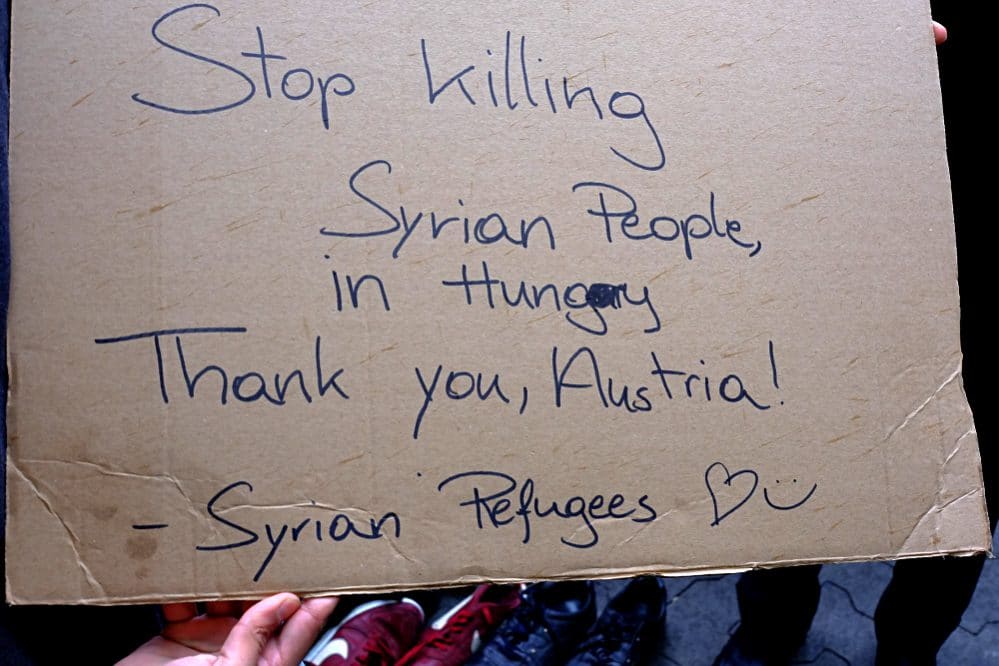 Stop killing
Syrian People,
in Hungary
Thank you, Austria!
- Syrian Refugees ♡ ü